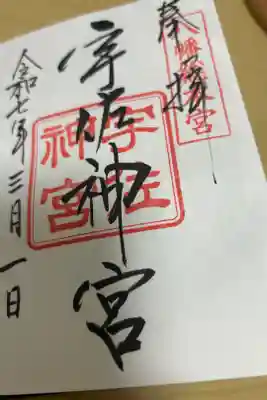 奉拝
八幡総本宮
宇佐神宮
宇佐
神宮
令和七年三月一日